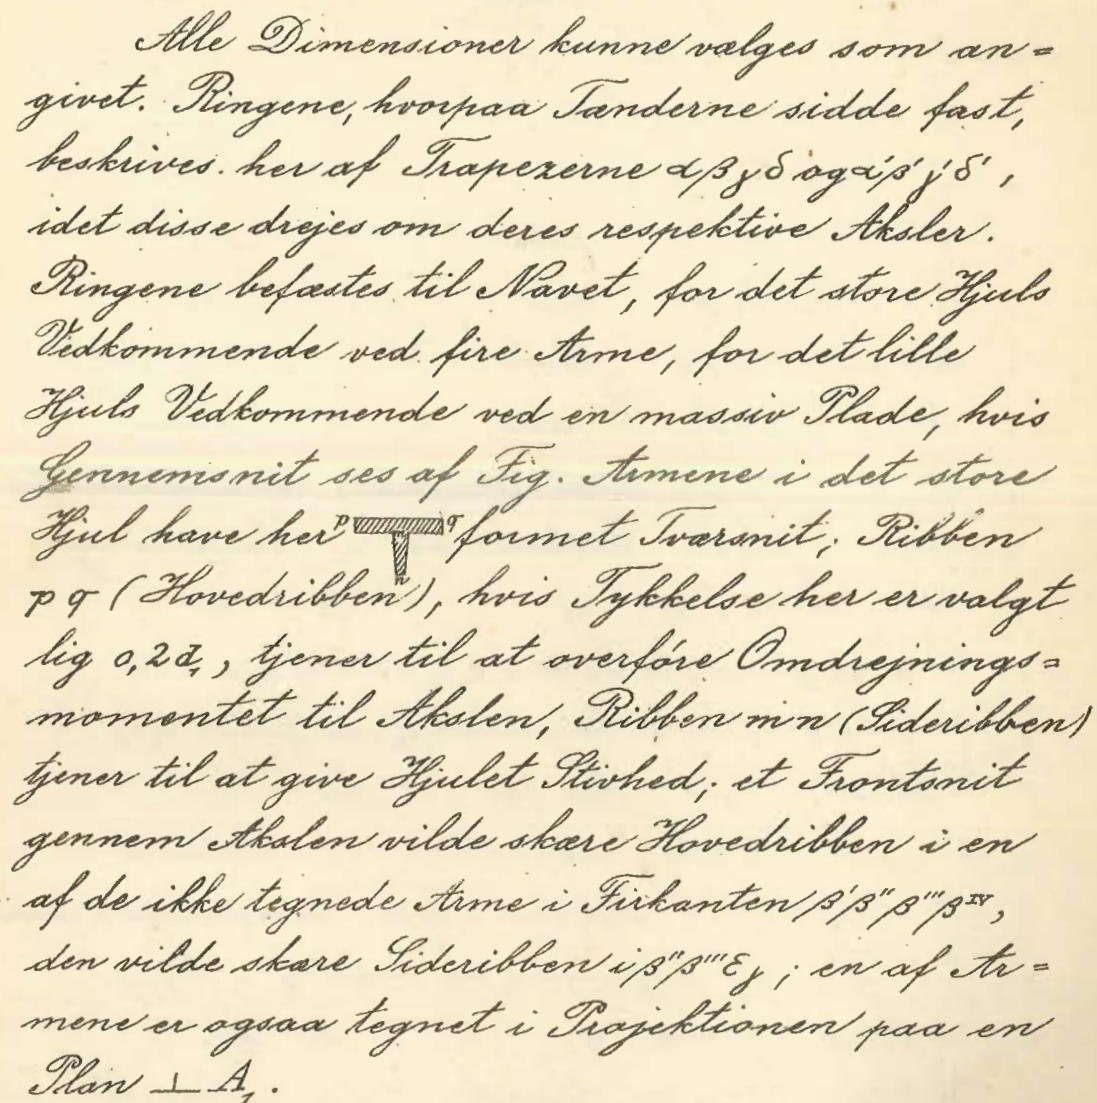 Alle Dimensioner kunne vælges som an=
givet. Ringene, hvorpaa Tænderne sidde fast,
beskrives her af Trapezerne αβγδ og α'β'γ'δ',
idet disse drejes om deres respektive Aksler.
Ringene befæstes til Navet, for det store Hjuls
Vedkommende ved fire Arme, for det lille
Hjuls Vedkommende ved en massiv Plade, hvis
Gennemsnit ses af Fig. Armene i det store
Hjul have her p q n formet Tværsnit; Ribben
p q (Hovedribben), hvis Tykkelse her er valgt
lig 0,2d₁, tjener til at overføre Omdrejnings=
momentet til Akslen, Ribben mn (Sideribben)
tjener til at give Hjulet Stivhed; et Frontsnit
gennem Akslen vilde skære Hovedribben i en
af de ikke tegnede Arme i Firkanten β'β''β'''βᴵⱽ,
den vilde skære Sideribben i β''β'''εγ; en af Ar=
mene er ogsaa tegnet i Projektionen paa en
Plan ⊥ A₁.